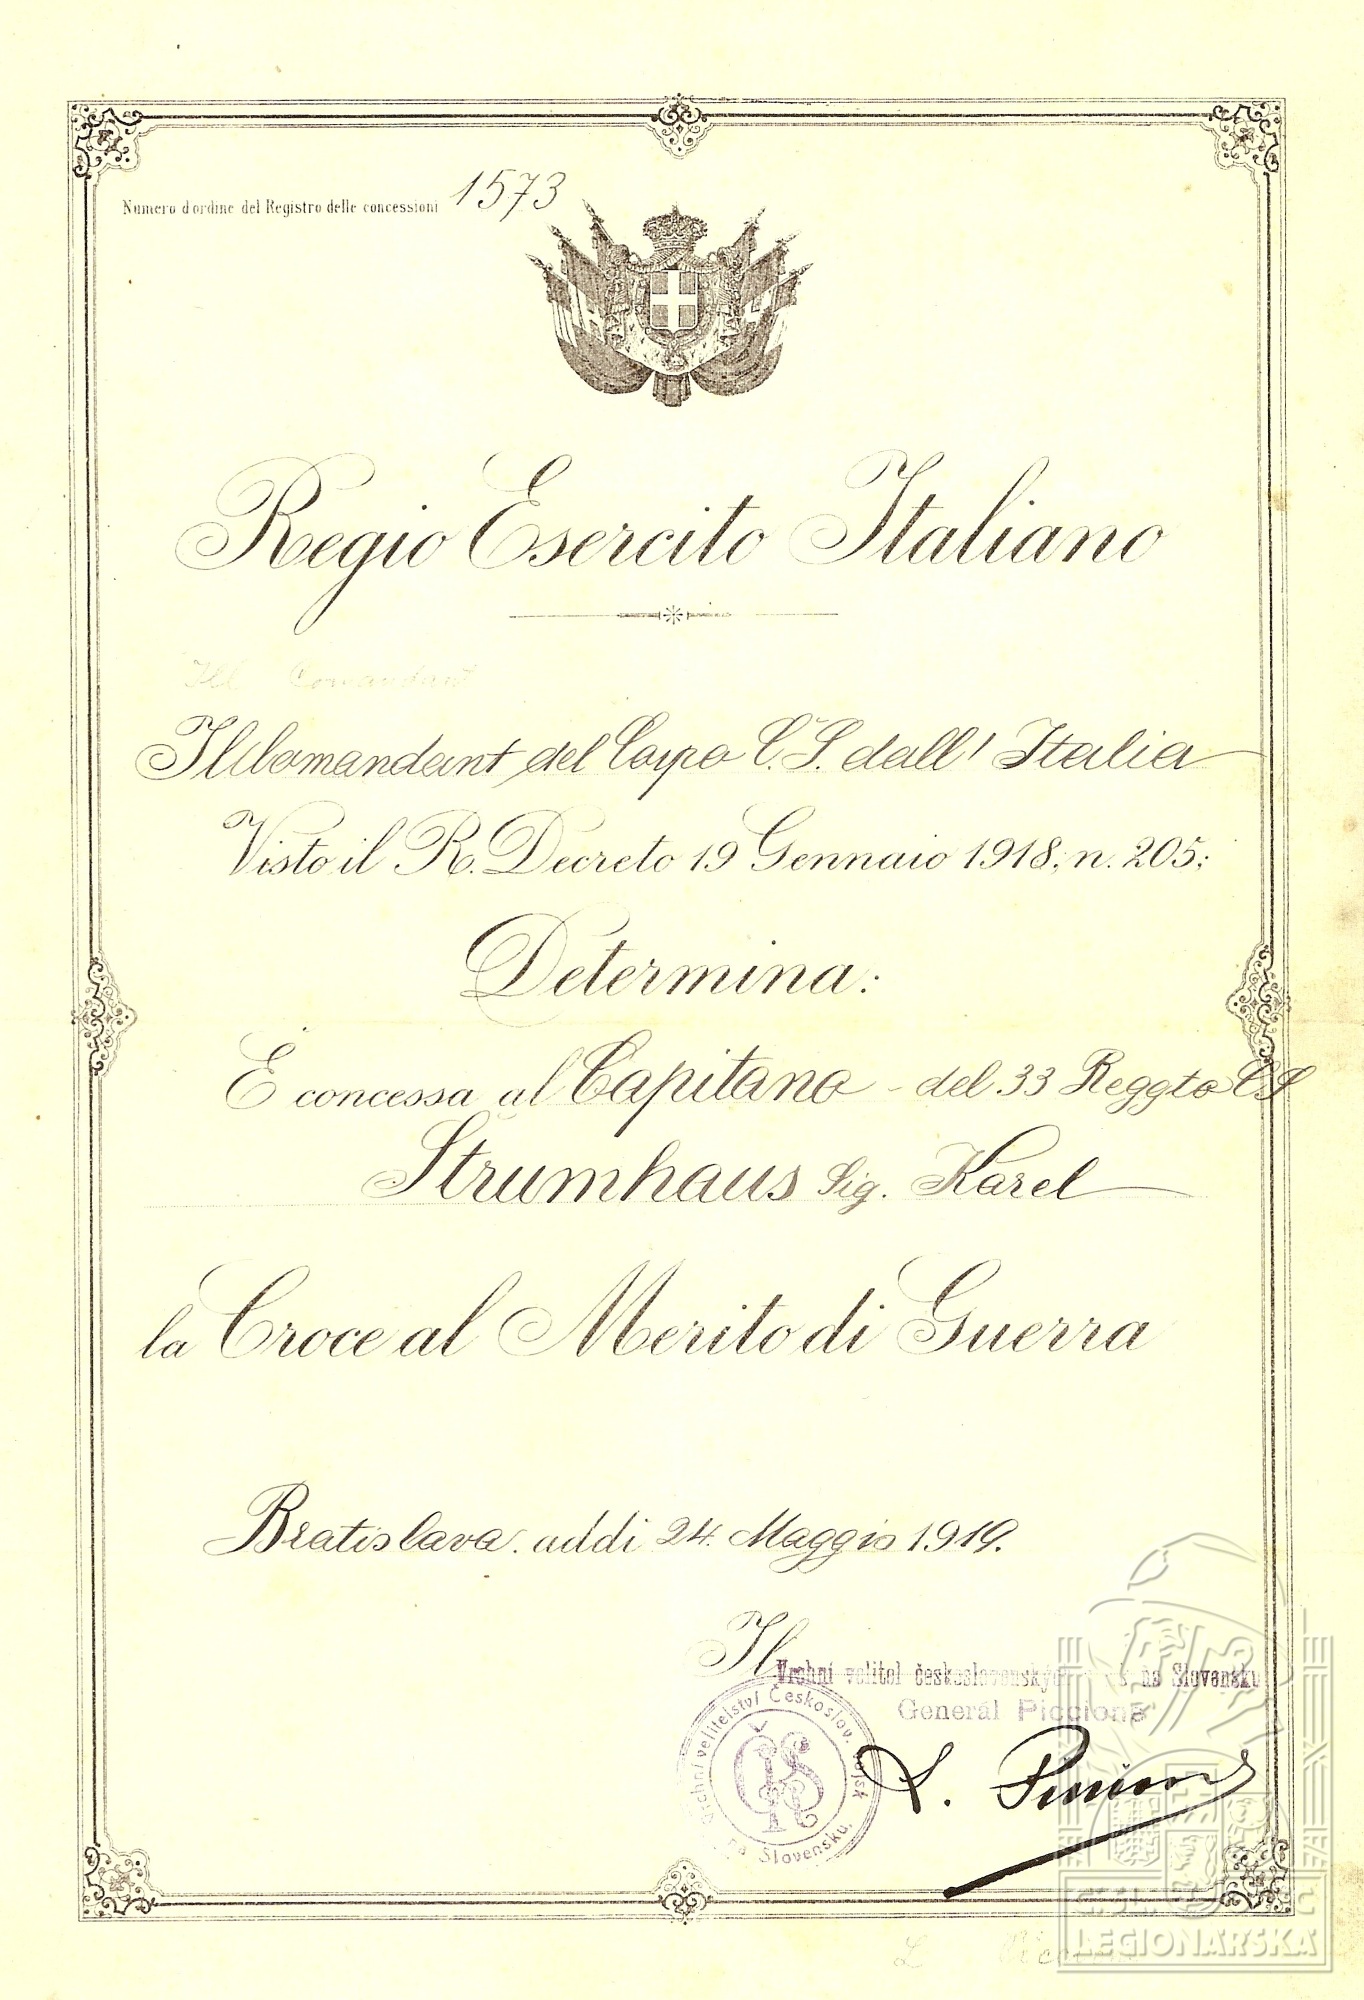 Numero d'ordine del Registro delle concessioni 1573
Regio Esercito Italiano
Ill Comandant
Il Comandant del Corpo C.S. dall' Italia
Visto il R. Decreto 19 Gennaio 1918, n. 205;
Determina:
È concessa al Capitano - del 33 Reggto CS
Strumhaus Sig. Karel
la Croce al Merito di Guerra
Bratislava addì 24. Maggio 1919.
Il
Vrchní velitel československých na Slovensku
Generál Piccione
Vrchní velitelství Českoslov. vojsk na Slovensku.
ČS
L. Piccione
LEGIONÁŘSKÁ